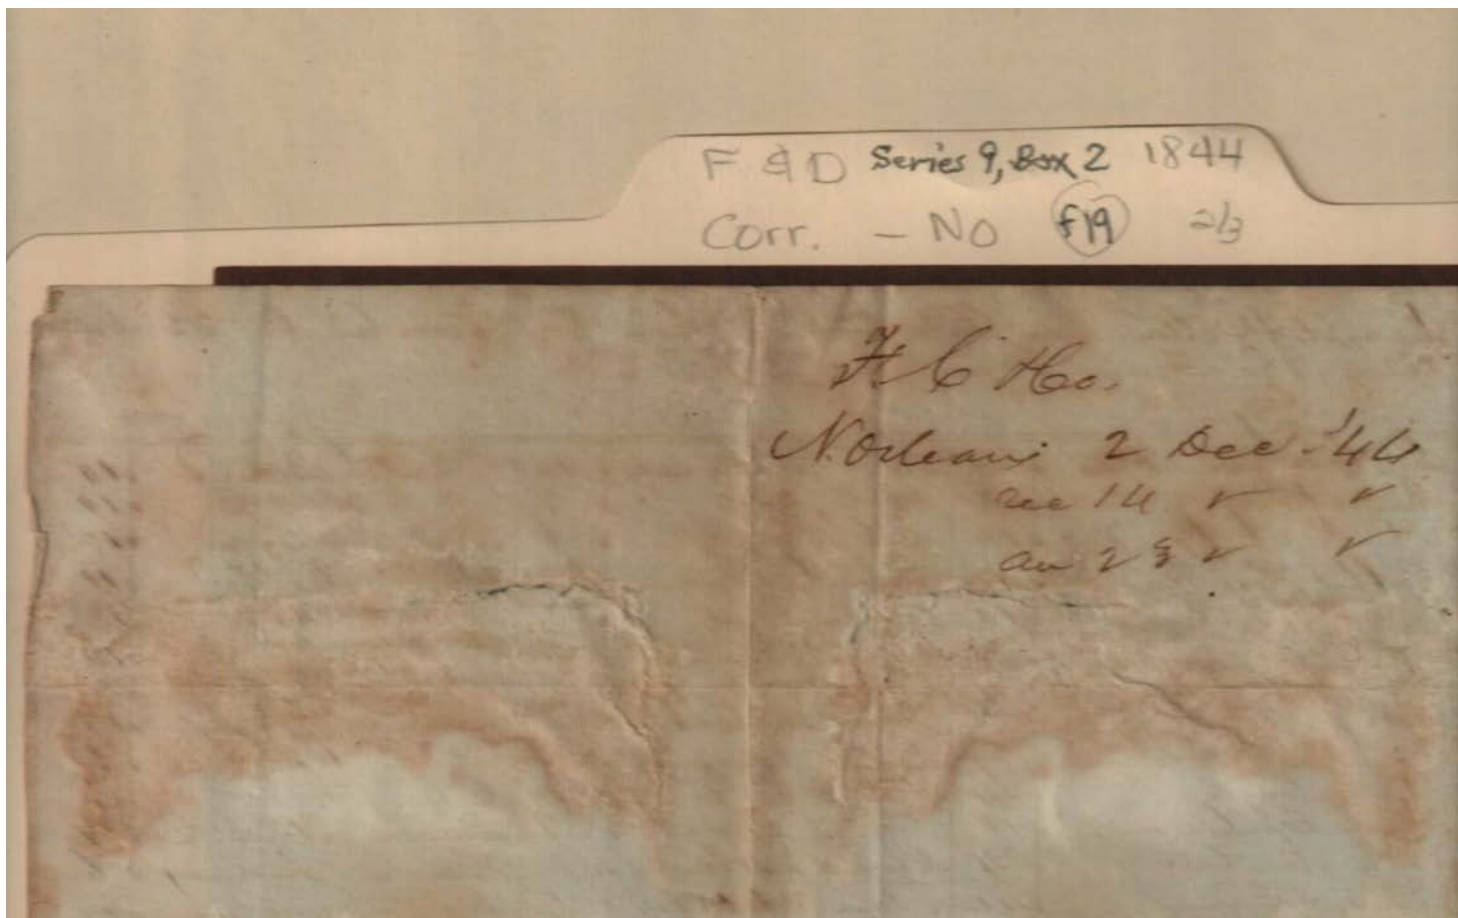 F & D Series 9, Box 2 1844
Corr. - No f19 2/3
F C & Co.
N. Orleans 2 Dec. '44
rec 14 " "
an 23 " "